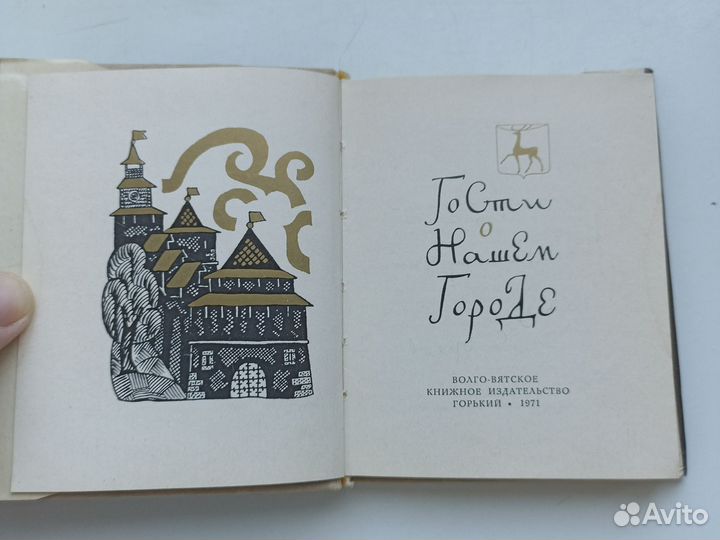 ГоСти
о
НашЕм
ГороДе
ВОЛГО-ВЯТСКОЕ
КНИЖНОЕ ИЗДАТЕЛЬСТВО
ГОРЬКИЙ • 1971
Avito